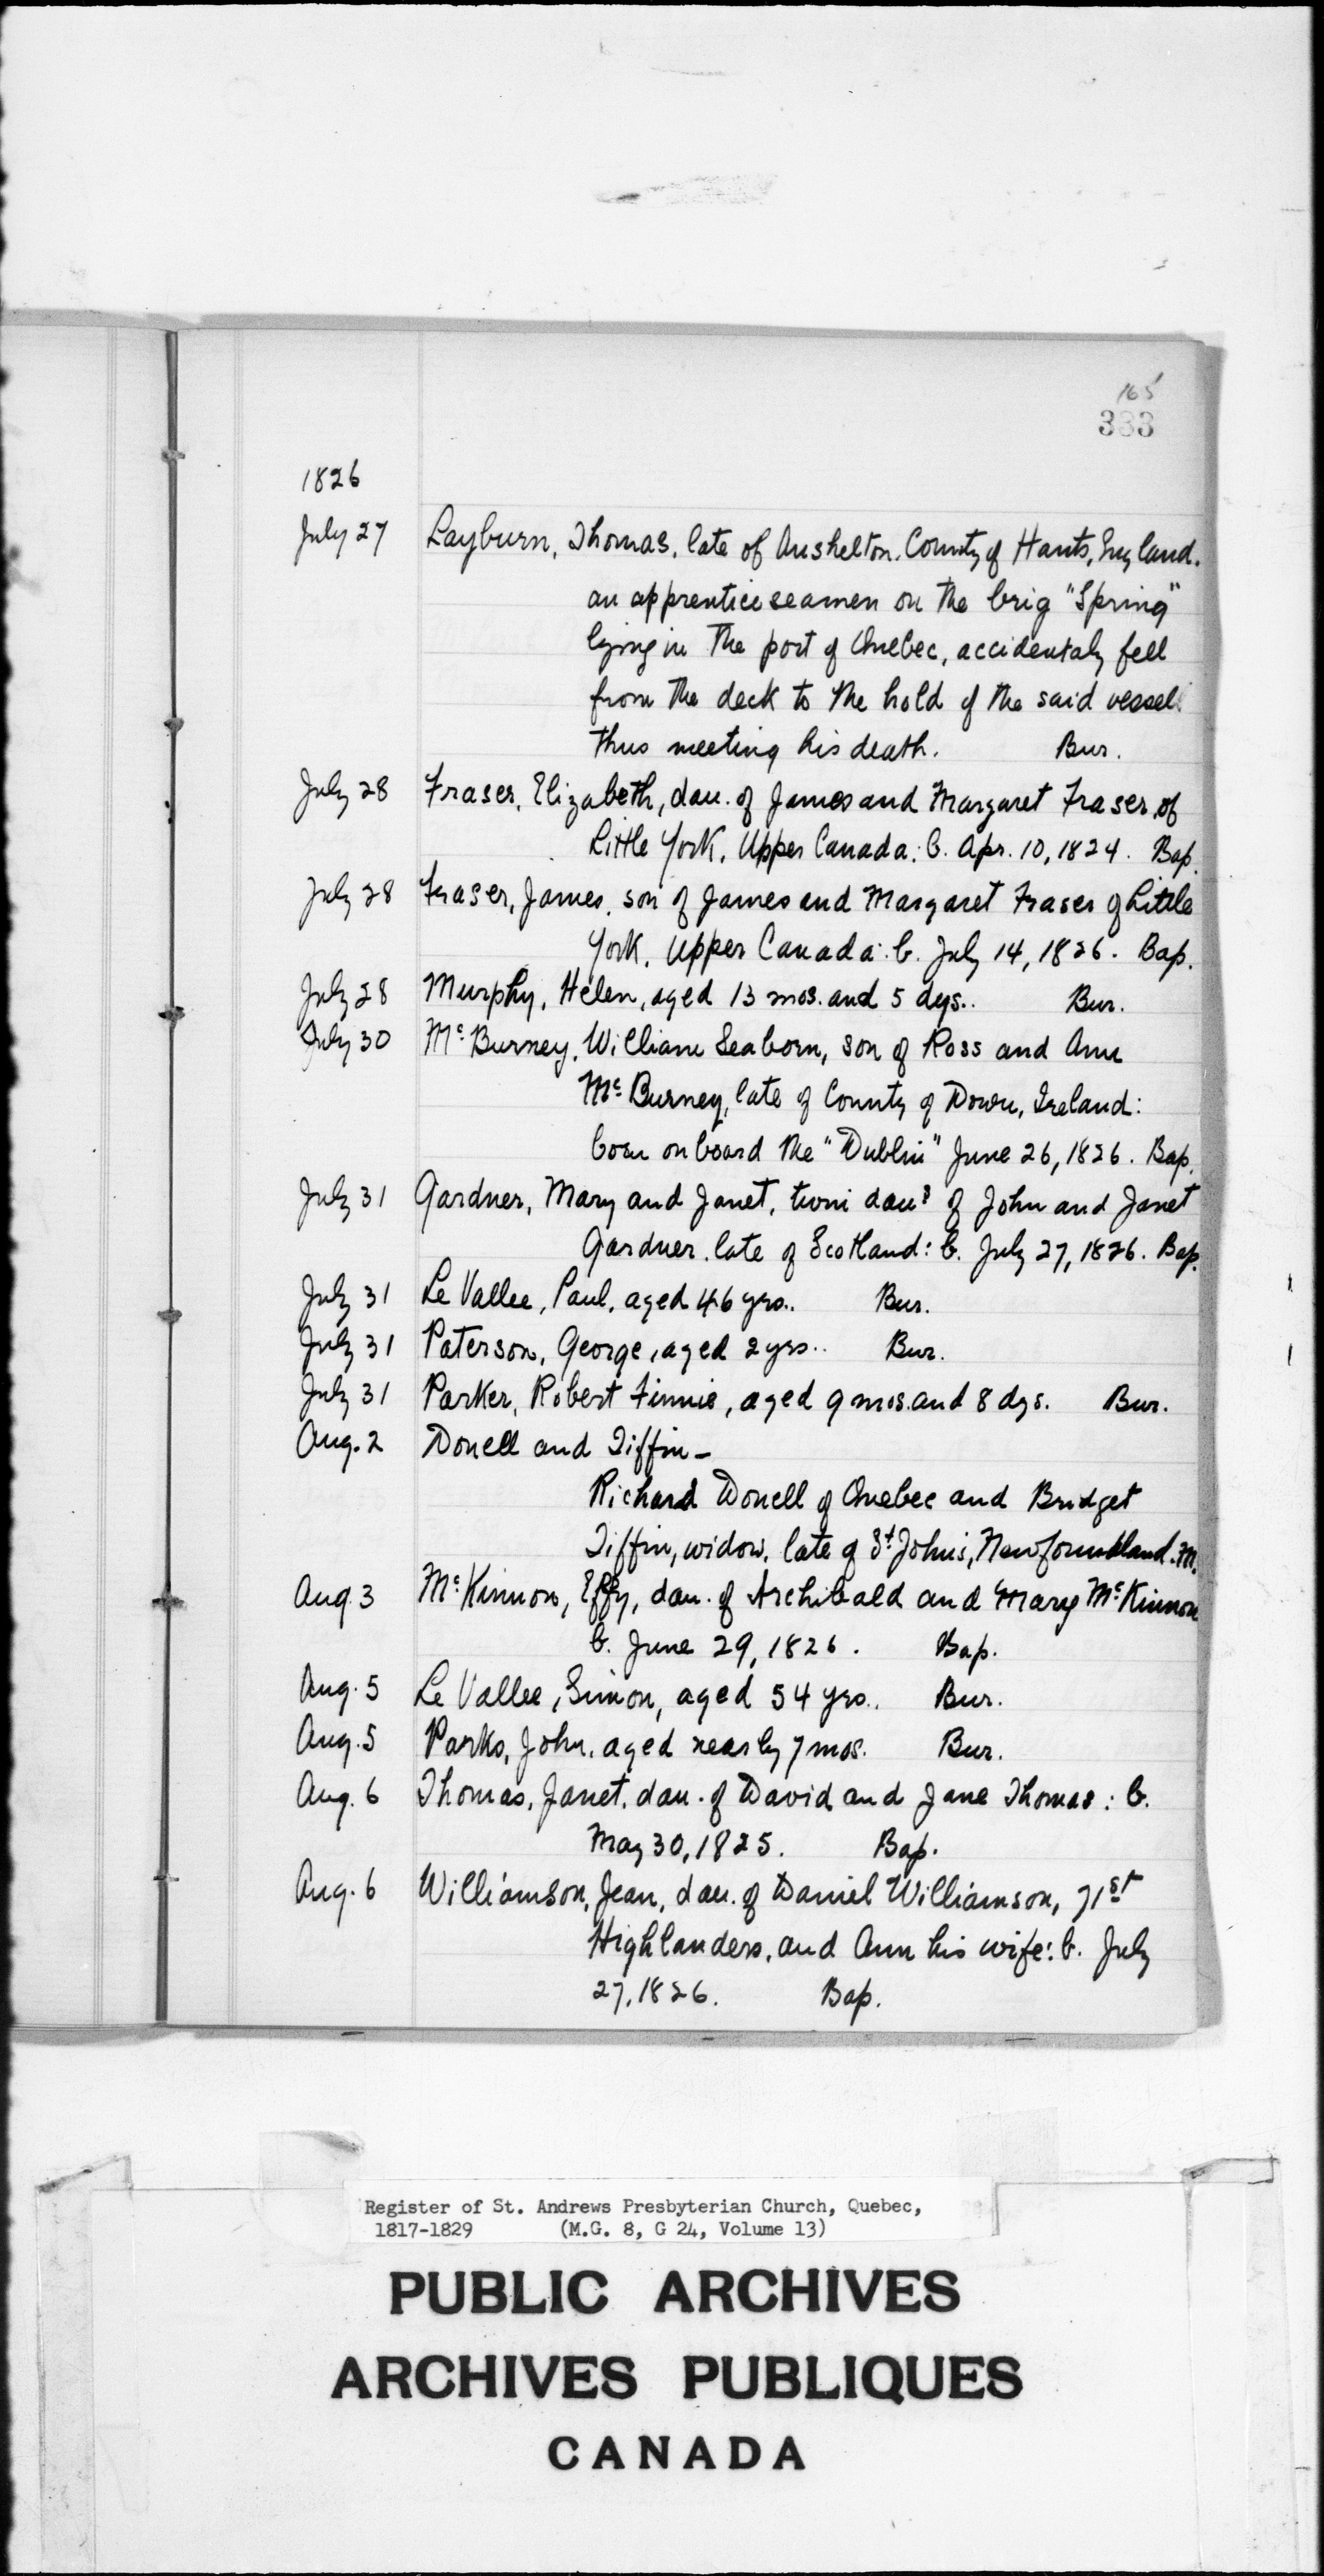 165
333
1826
July 27 Layburn, Thomas, late of Aushelton, County of Hants, England.
an apprentice seamen on the brig "Spring"
lying in the port of Quebec, accidentaly fell
from the deck to the hold of the said vessel
thus meeting his death. Bur.
July 28 Fraser, Elizabeth, dau. of James and Margaret Fraser, of
Little York, Upper Canada: b. Apr. 10, 1824. Bap.
July 28 Fraser, James, son of James and Margaret Fraser of Little
York, Upper Canada: b. July 14, 1826. Bap.
July 28 Murphy, Helen, aged 13 mos. and 5 dys.. Bur.
July 30 McBurney, William Seaborn, son of Ross and Ann
McBurney, late of County of Down, Ireland:
born on board the "Dublin" June 26, 1826. Bap.
July 31 Gardner, Mary and Janet, twin daus of John and Janet
Gardner, late of Scotland: b. July 27, 1826. Bap.
July 31 Le Vallee, Paul, aged 46 yrs.. Bur.
July 31 Paterson, George, aged 2 yrs.. Bur.
July 31 Parker, Robert Finnie, aged 9 mos. and 8 dys. Bur.
Aug. 2 Donell and Tiffin –
Richard Donell of Quebec and Bridget
Tiffin, widow, late of St Johns, Newfoundland. M.
Aug. 3 McKinnon, Effy, dau. of Archibald and Mary McKinnon
b. June 29, 1826. Bap.
Aug. 5 Le Vallee, Simon, aged 54 yrs.. Bur.
Aug. 5 Parks, John, aged nearly 7 mos. Bur.
Aug. 6 Thomas, Janet, dau. of David and Jane Thomas: b.
May 30, 1825. Bap.
Aug. 6 Williamson, Jean, dau. of Daniel Williamson, 71st
Highlanders, and Ann his wife: b. July
27, 1826. Bap.
Register of St. Andrews Presbyterian Church, Quebec,
1817-1829 (M.G. 8, G 24, Volume 13)
PUBLIC ARCHIVES
ARCHIVES PUBLIQUES
CANADA